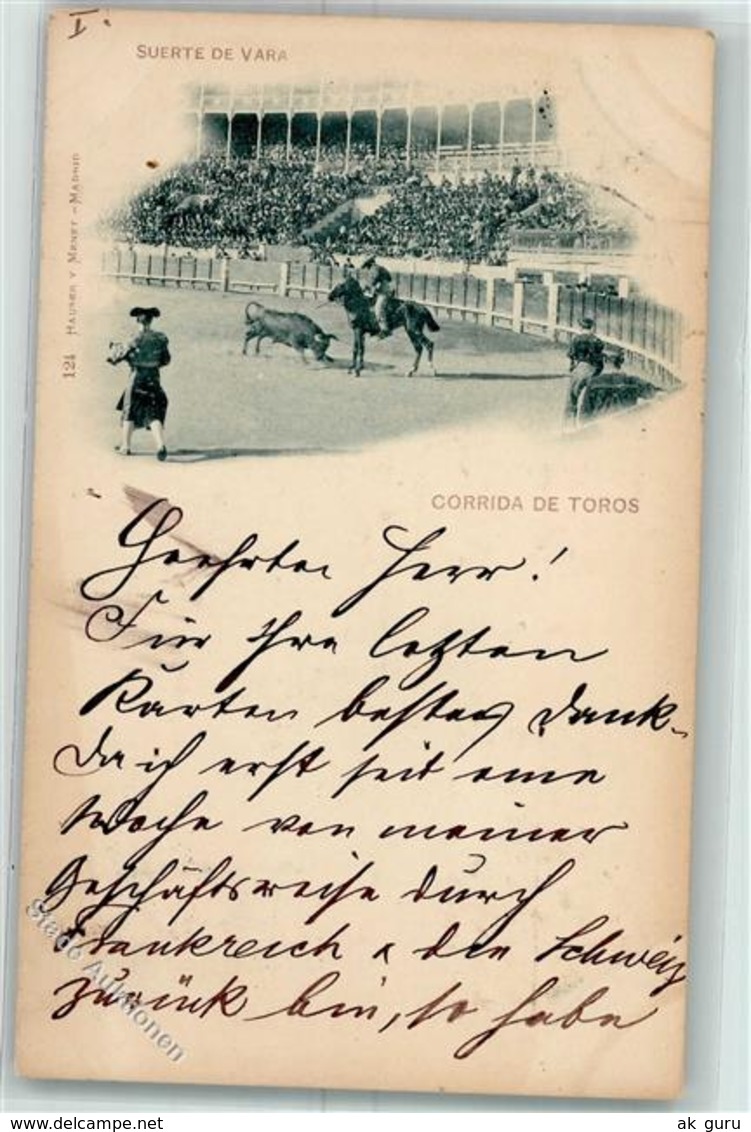 I.
SUERTE DE VARA
124 HAUSER Y MENET.-MADRID
CORRIDA DE TOROS
Geehrter Herr!
Für Ihre letzten
Karten besten Dank.
Da ich erst seit eine
Woche von meiner
Geschäftsreise durch
Frankreich & die Schweiz
zurück bin, so habe
Stedo Auktionen
www.delcampe.net
ak_guru